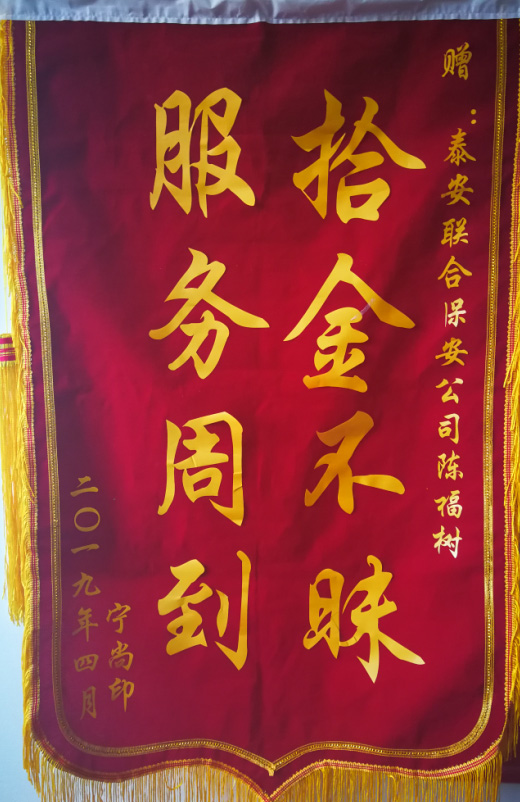 赠：泰安联合保安公司陈福树
拾金不昧
服务周到
宁尚印
二〇一九年四月